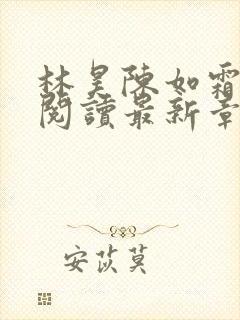 林昊陳如霜
閱讀最新章
安苡莫